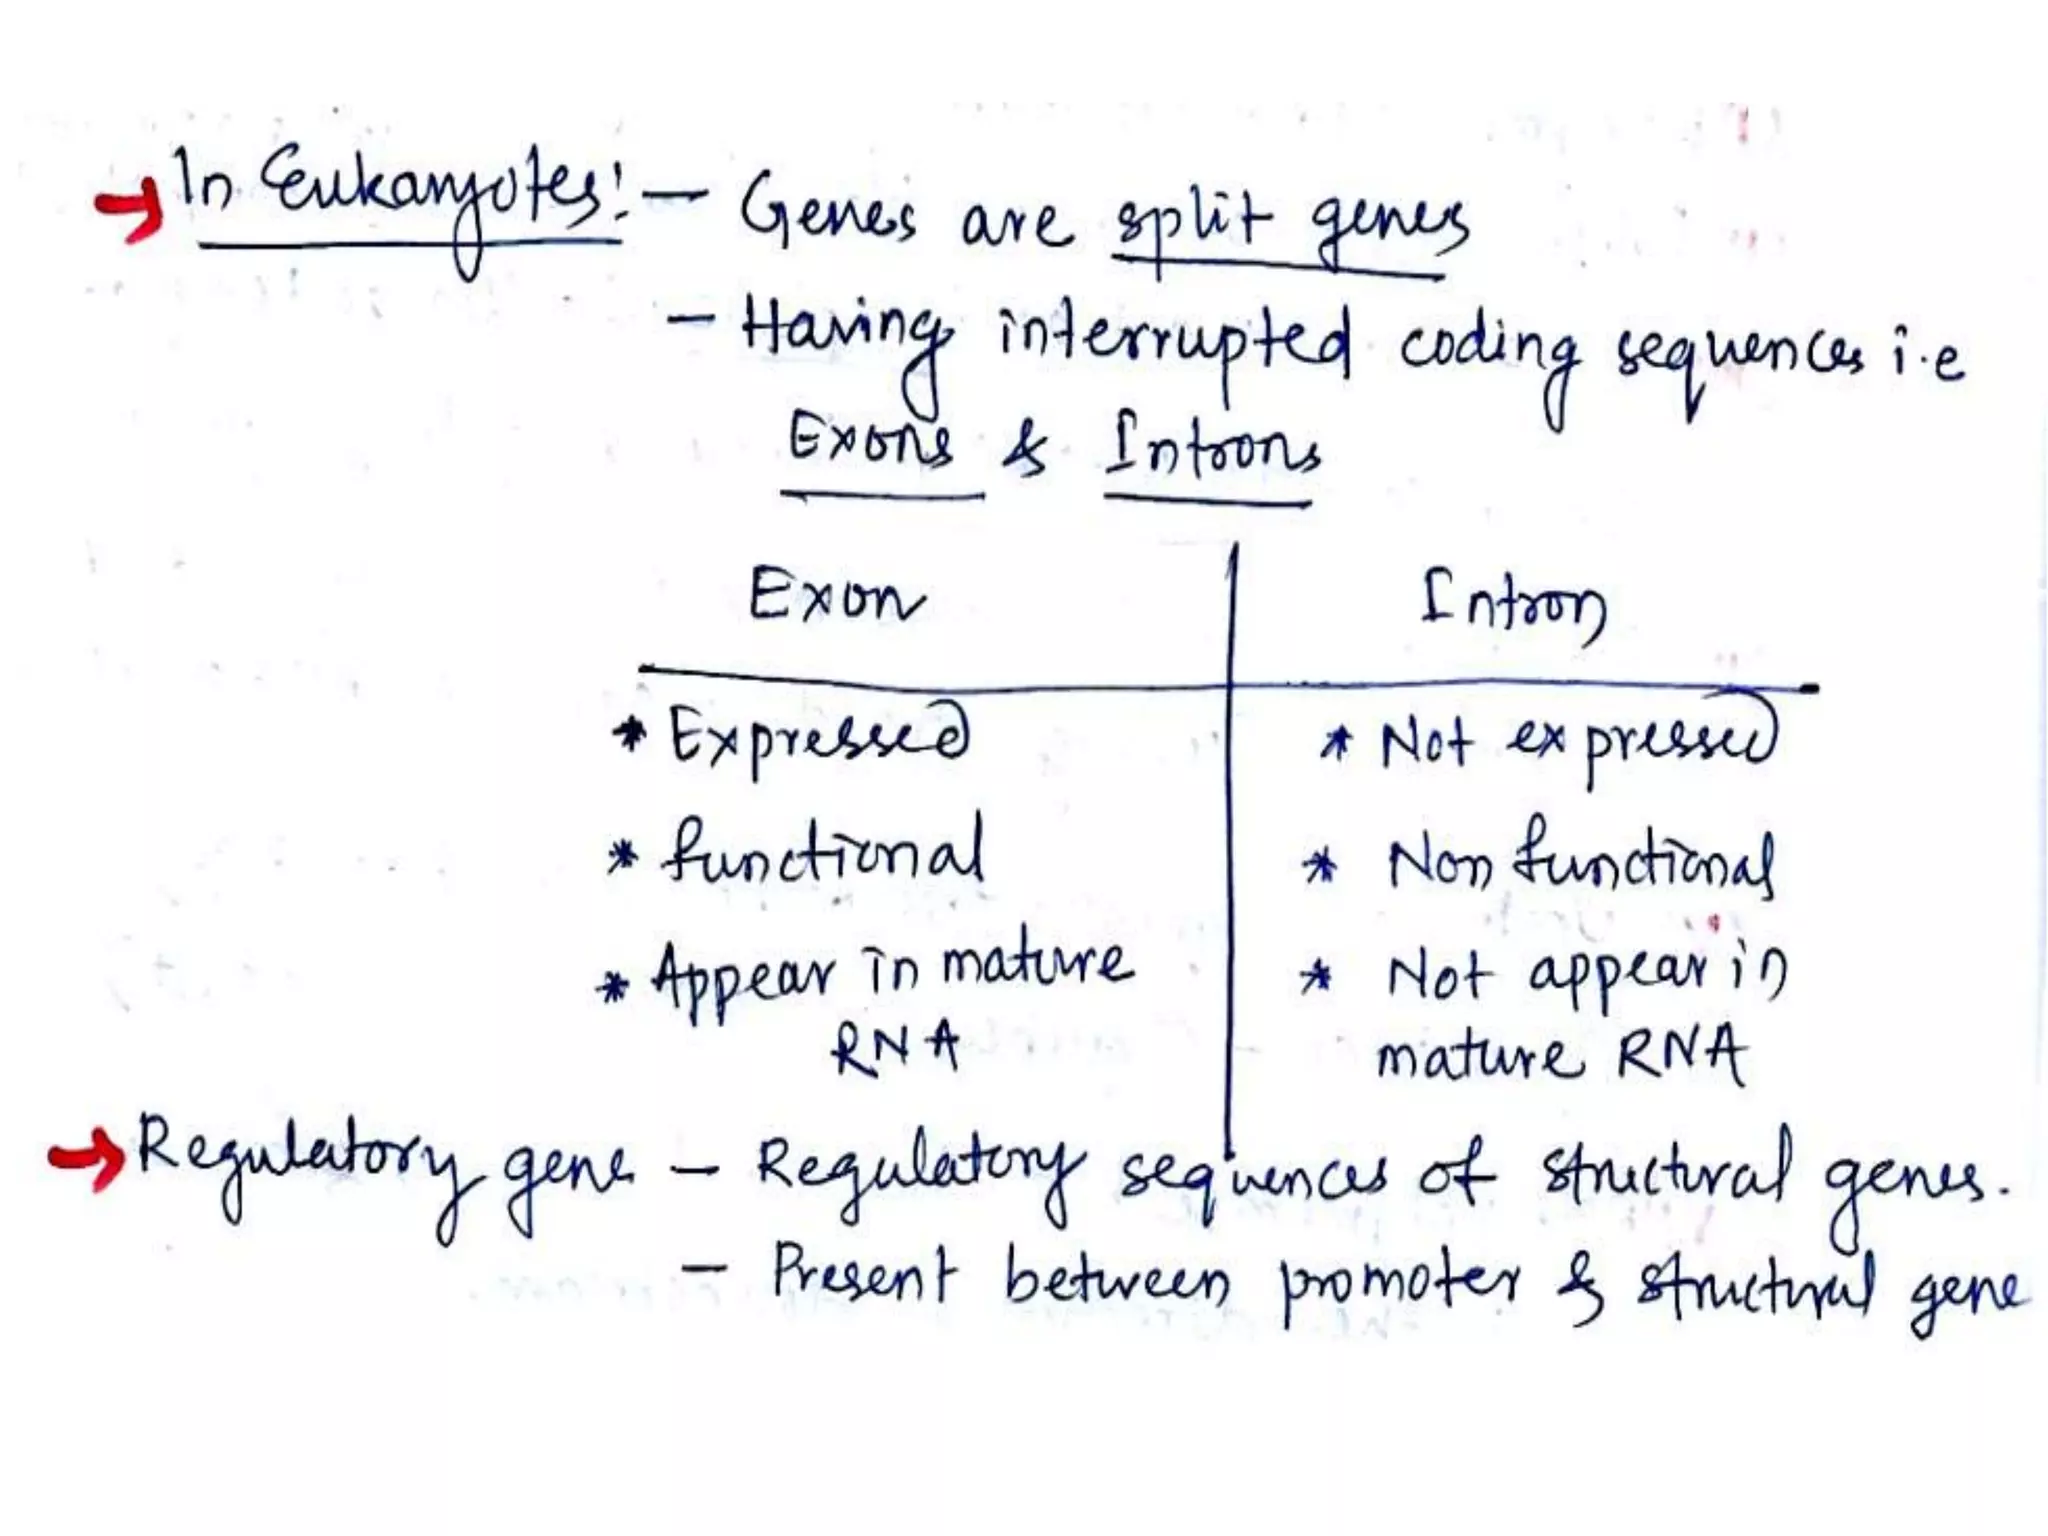 → In Eukaryotes:- Genes are split genes
- Having interrupted coding sequences i.e
Exons & Introns
Exon Intron
* Expressed * Not expressed
* functional * Non functional
* Appear in mature * Not appear in
RNA mature RNA
→ Regulatory gene - Regulatory sequences of structural genes.
- Present between promoter & structural gene